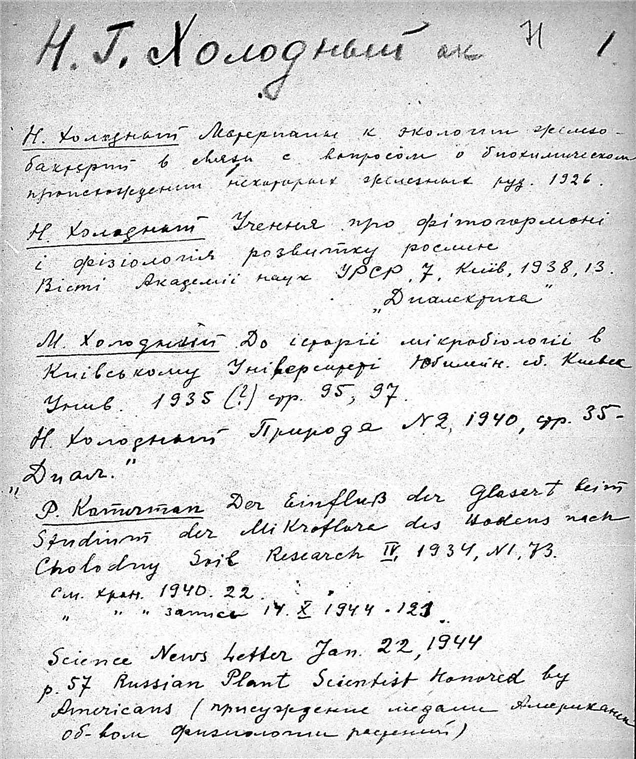 Н. Г. Холодный ак Н 1
Н. Холодный Материалы к экологии железо-
бактерий в связи с вопросом о биохимическом
происхождении некоторых железных руд. 1926.
Н. Холодный Учення про фітогормоні
і фізіологія розвитку рослин
Вісті Академії наук УРСР, 7, Київ, 1938, 13.
"Диалектика"
М. Холодний До історії мікробіології в
Київському Університеті Юбилейн. сб. Киевск
Унив. 1935 (?) стр. 95, 97.
Н. Холодный Природа N2, 1940, стр. 35-
"Диал."
P. Kamerman Der Einfluß der Glasert beim
Studium der Mikroflora des Bodens nach
Cholodny Soil Research IV, 1934, N1, 73.
См. хран. 1940. 22.
" " " запись 14. X 1944 - 121
Science News Letter Jan. 22, 1944
p. 57 Russian Plant Scientist Honored by
Americans (присуждение медали Американск
об-вом физиологии растений)